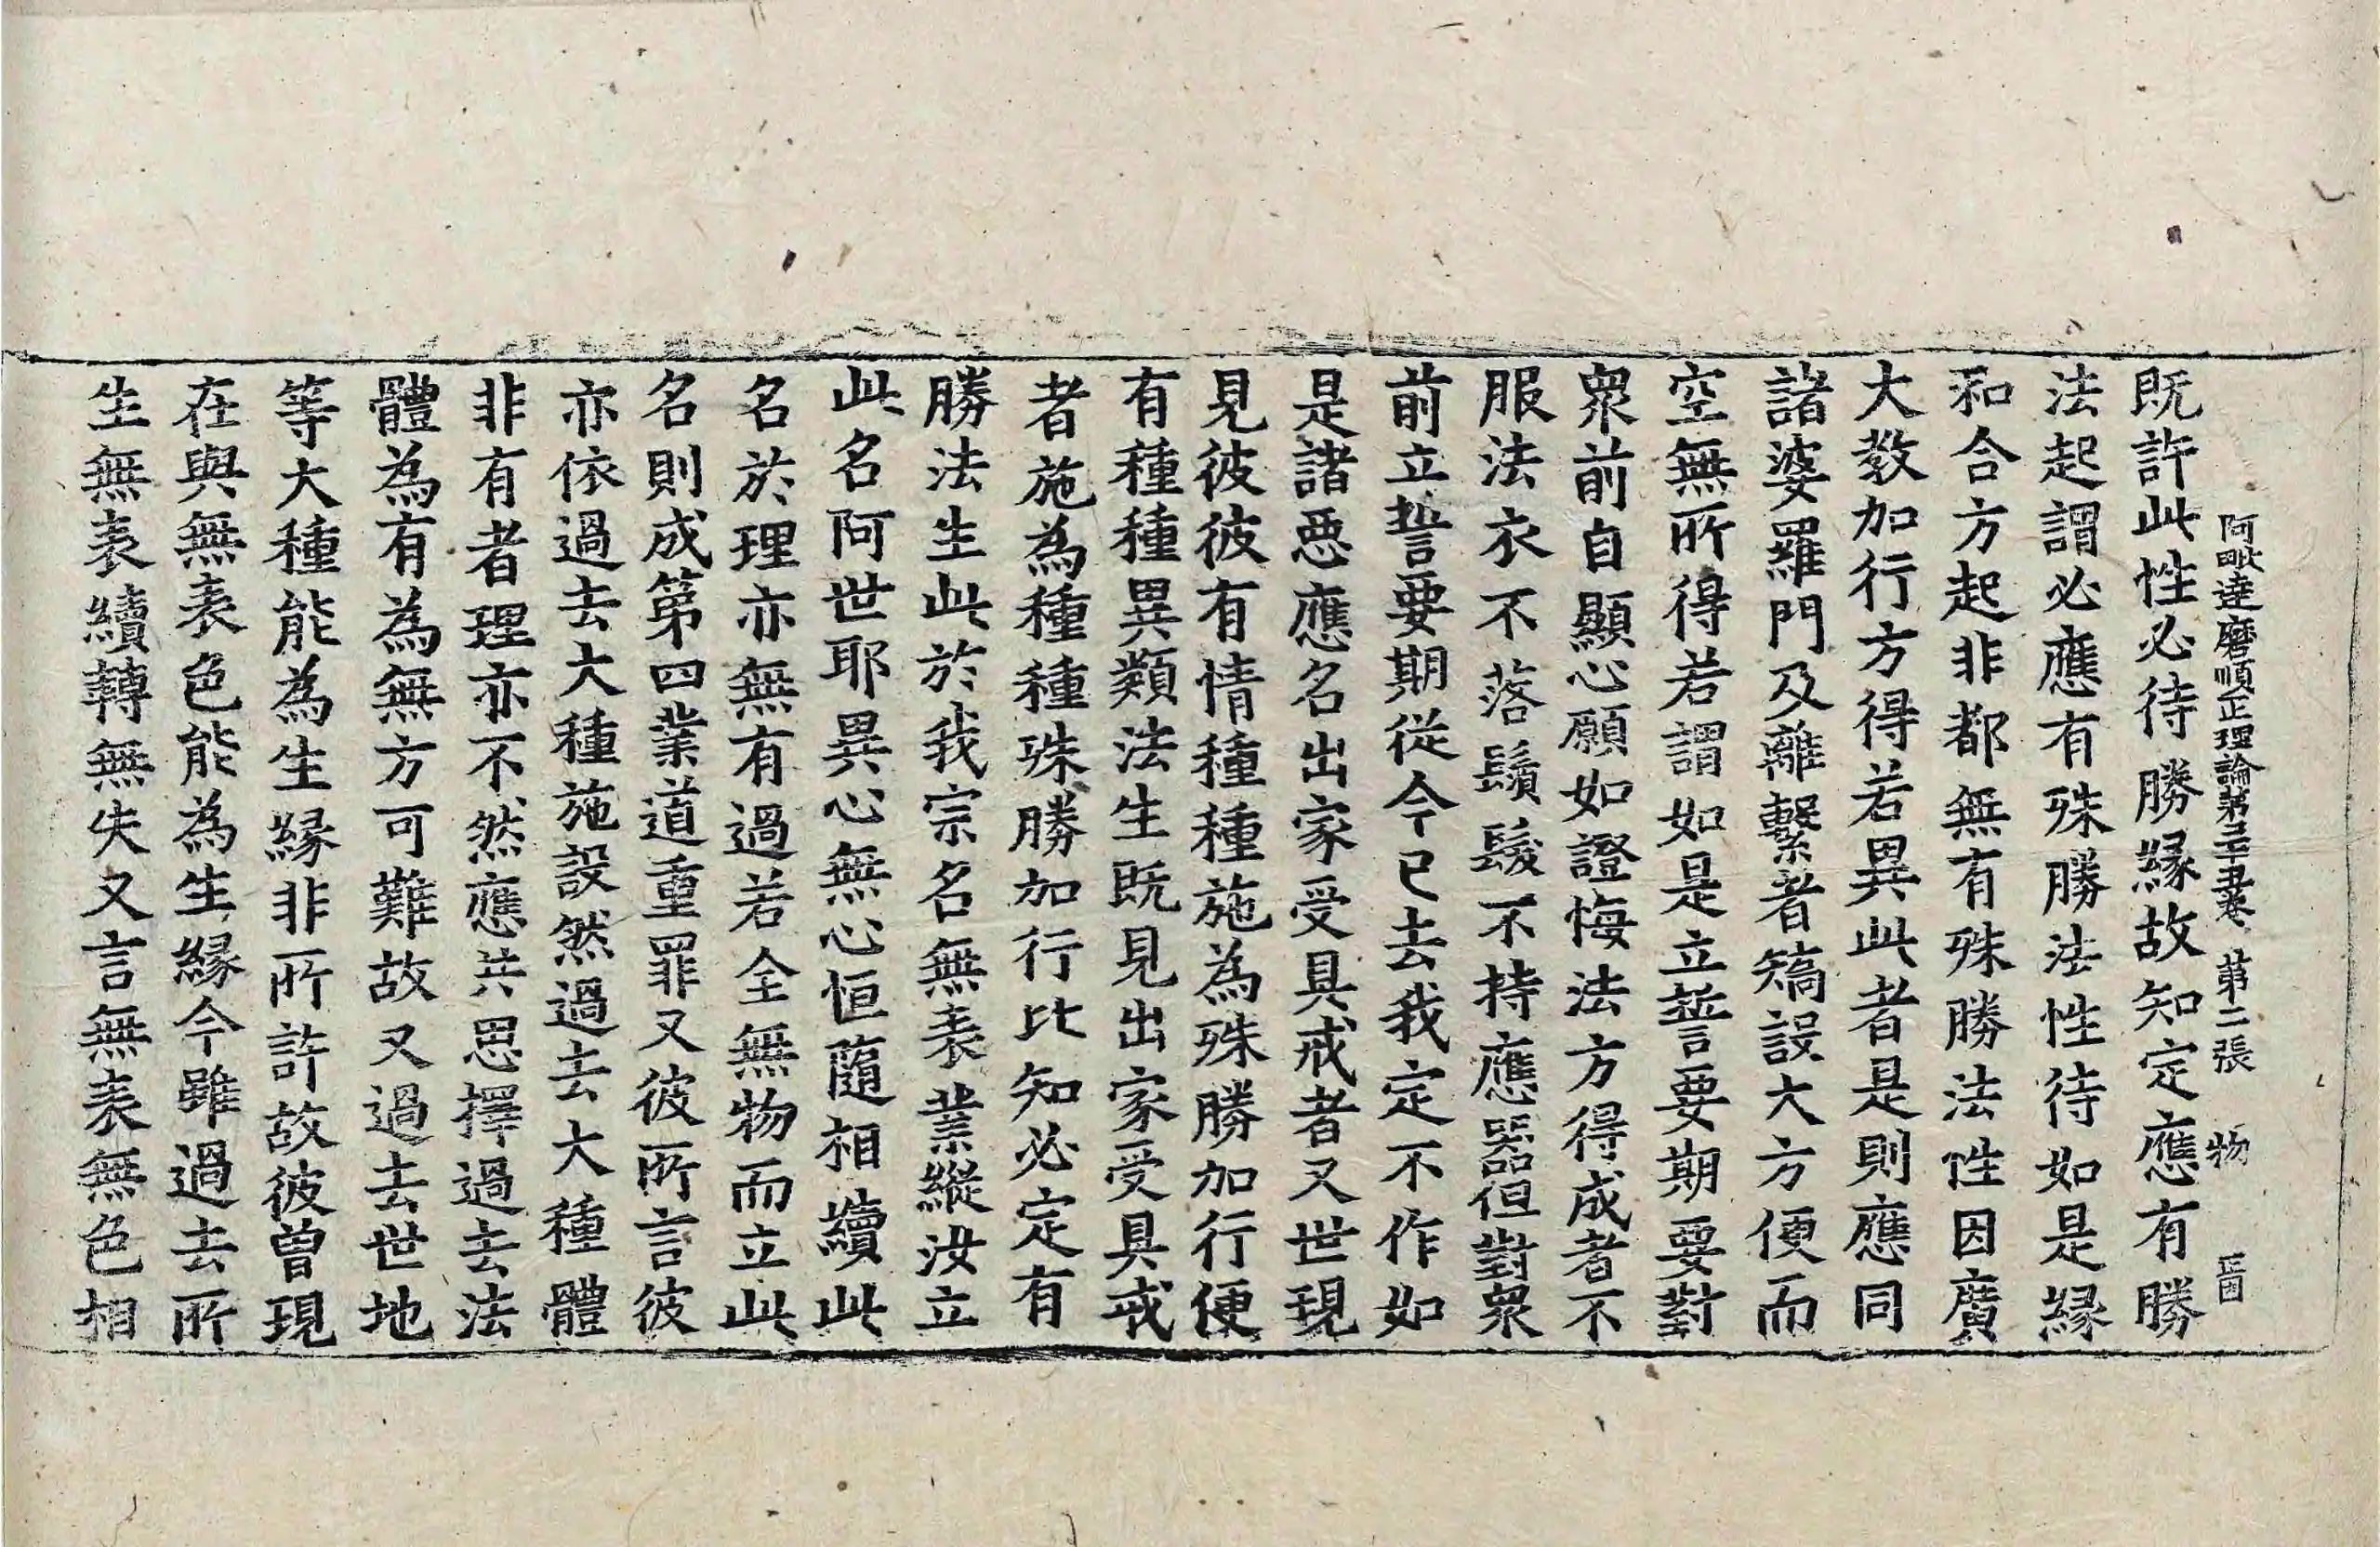 阿毗達磨順正理論第三十五卷 第二張 物
既許此性必待勝縁故知定應有勝
法起謂必應有殊勝法性待如是縁
和合方起非都無有殊勝法性因廣
大教加行方得若異此者是則應同
諸婆羅門及離繫者矯設大方便而
空無所得若謂如是立誓要期要對
衆前自顯心願如證悔法方得成者不
服法衣不落鬚髮不持應器但對衆
前立誓要期從今已去我定不作如
是諸惡應名出家受具戒者又世現
見彼彼有情種種施為殊勝加行便
有種種異類法生既見出家受具戒
者施為種種殊勝加行比知必定有
勝法生此於我宗名無表業縱汝立
此名阿世耶異心無心恒隨相續此
名於理亦無有過若全無物而立此
名則成第四業道重罪又彼所言彼
亦依過去大種施設然過去大種體
非有者理亦不然應共思擇過去法
體為有為無方可難故又過去世地
等大種能為生縁非所許故彼曾現
在與無表色能為生縁今雖過去所
生無表續轉無失又言無表無色相